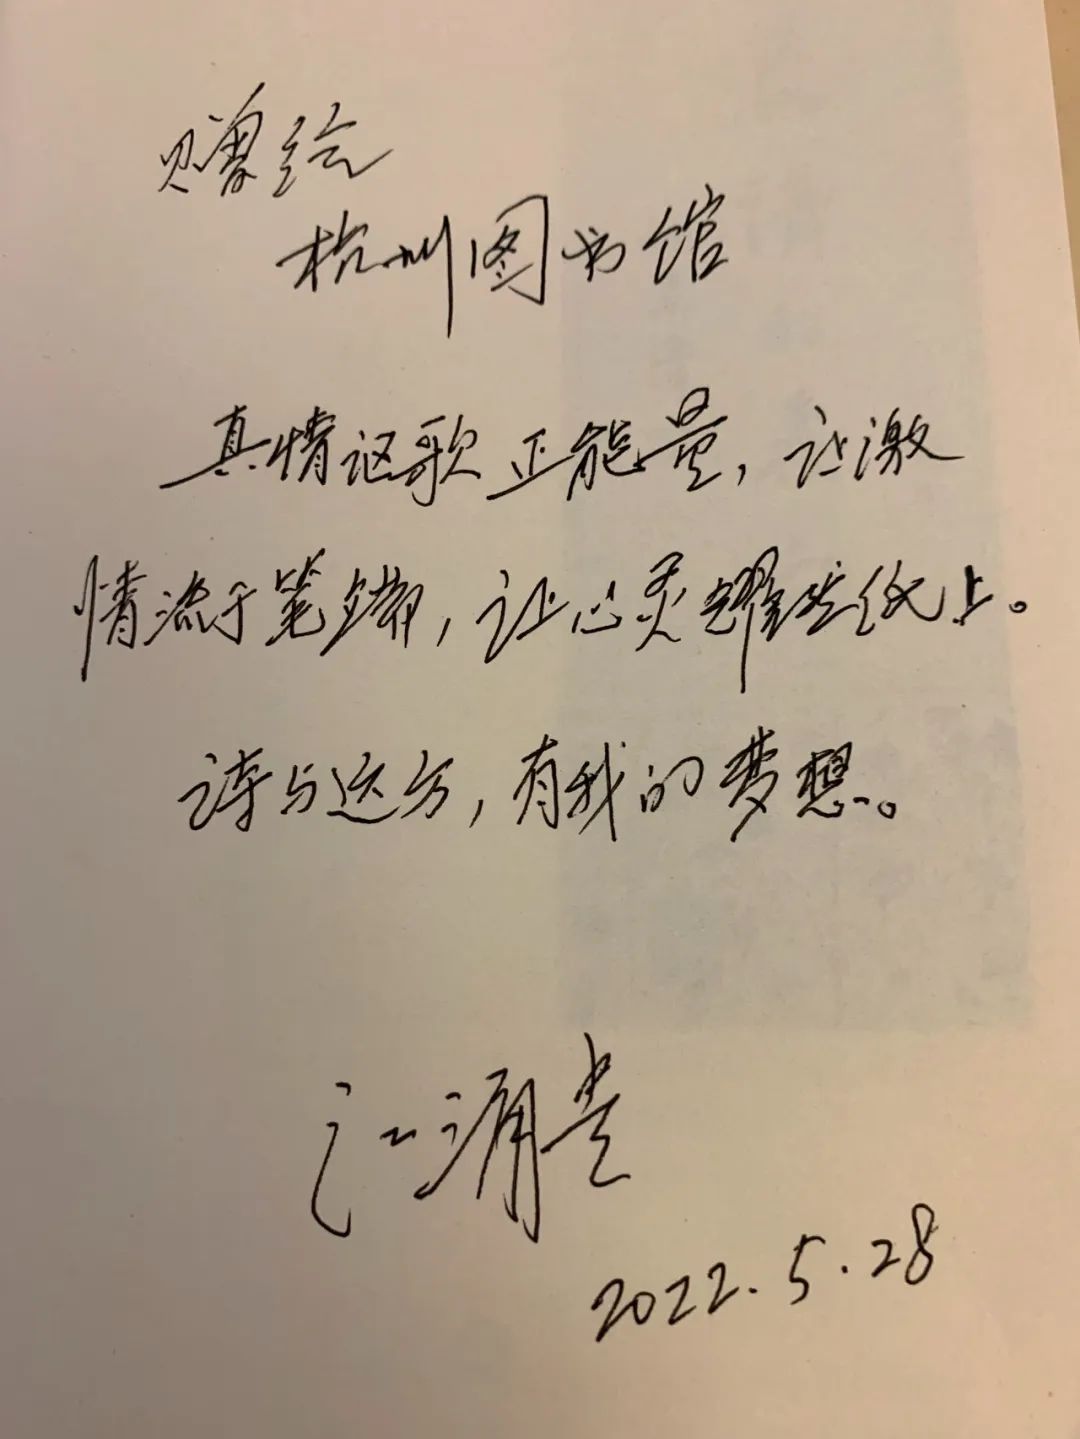 赠给
杭州图书馆
真情讴歌正能量，让激
情流于笔端，让心灵耀然纸上。
诗与远方，有我的梦想。
江涌贵
2022.5.28